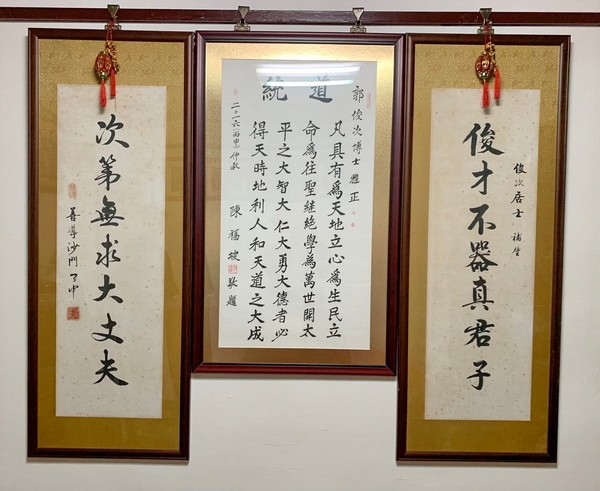 俊次居士 補壁
俊才不器真君子
道統
郭俊次博士 雅正
凡具有為天地立心為生民立
命為往聖継絕學為萬世開太
平之大智大仁大勇大德者必
得天時地利人和天道之大成
二〇一六丙申仲秋
次第無求大丈夫
善導沙門了中